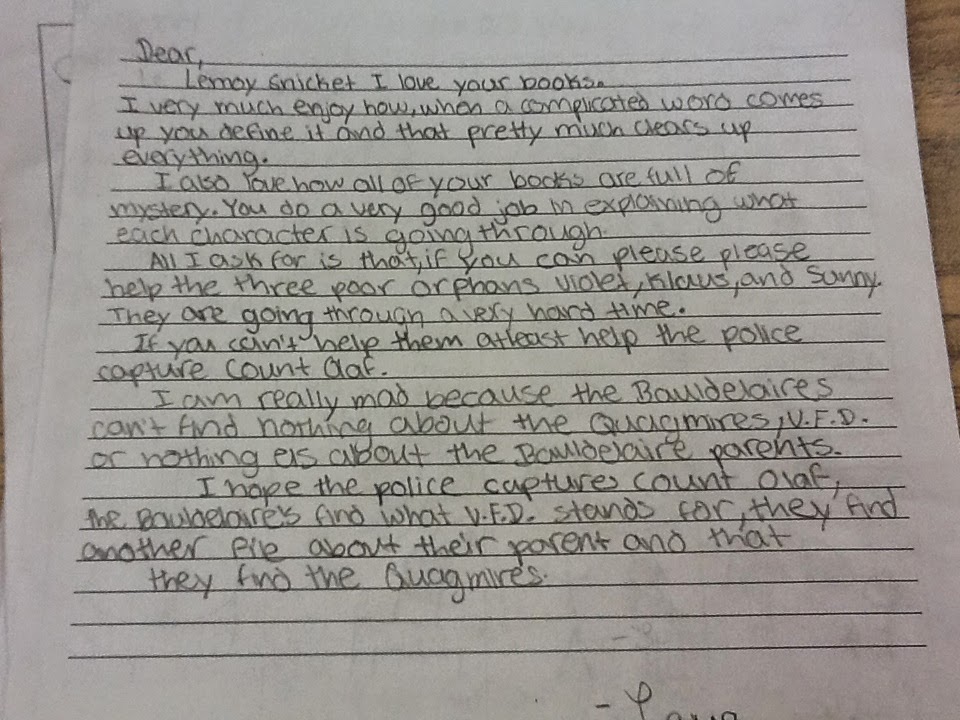 Dear,
Lemoy Snicket I love your books.
I very much enjoy how, when a complicated word comes
up you define it and that pretty much clears up
everything.
I also love how all of your books are full of
mystery. You do a very good job in explaining what
each character is going through.
All I ask for is that, if you can please please
help the three poor orphans Violet, Klaus, and Sunny.
They are going through a very hard time.
If you can't help them atleast help the police
capture Count Olaf.
I am really mad because the Bauldelaires
can't find nothing about the Quagmires, V.F.D.
or nothing els about the Bauldelaire parents.
I hope the police captures Count Olaf,
the Bauldelaire's find what V.F.D. stands for, they find
another file about their parent and that
they find the Quagmires.